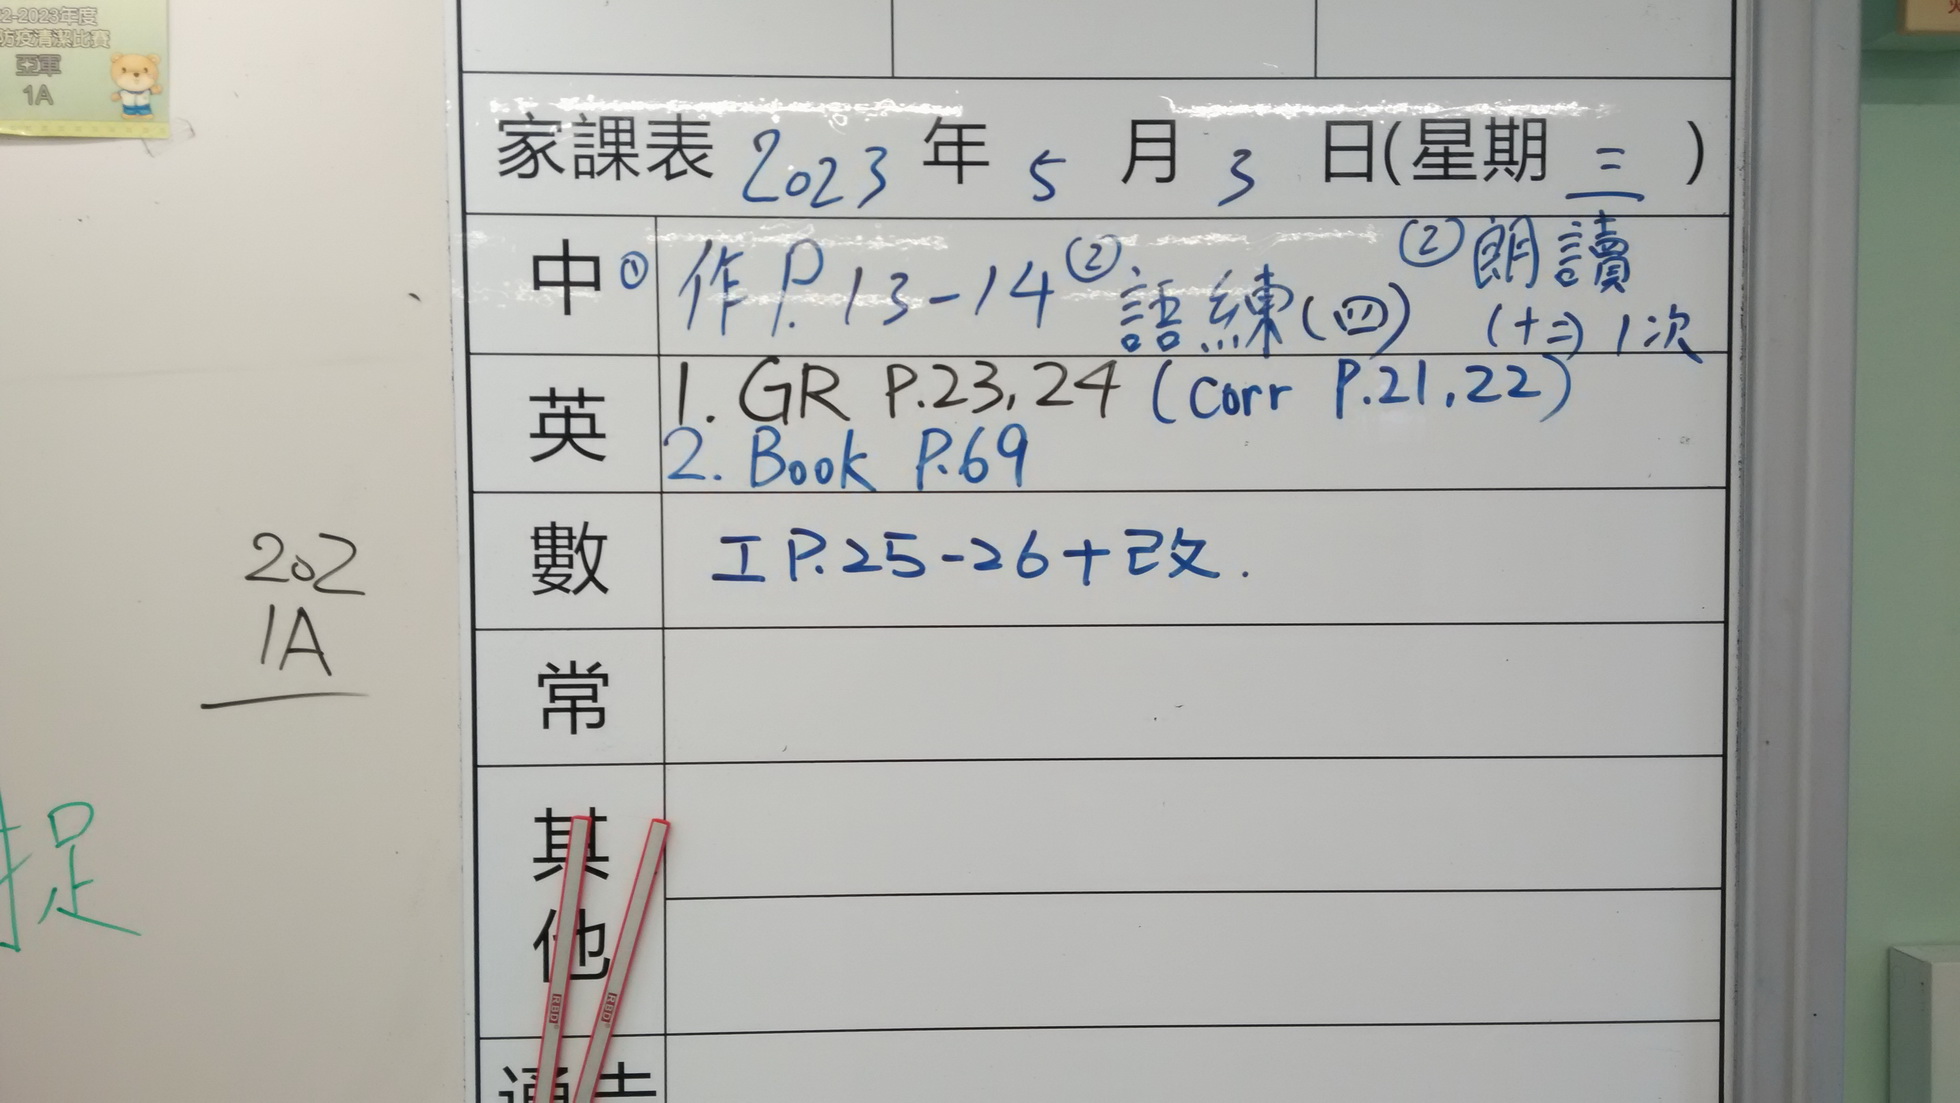 2-2023年度
防疫清潔比賽
亞軍
1A
家課表 2023 年 5 月 3 日(星期 三 )
中 ① 作 P.13-14 ② 語練(四) ② 朗讀
(十二) 1次
英 1. GR P.23,24 (Corr P.21,22)
2. Book P.69
數 工 P.25-26+改.
常
其
他
通告
202
1A
捉
RBD
RBD